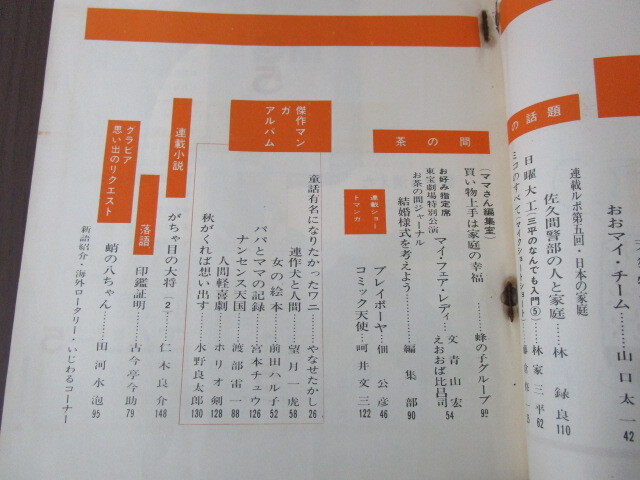 おおマイ・チーム……山口太一 42
の話題
連載ルポ第五回・日本の家庭
佐久間警部の人と家庭…林 録良 110
日曜大工(三平のなんでも入門⑤)…林家三平 62
茶の間
(ママさん編集室)
買い物上手は家庭の幸福………峰の子グループ 99
お好み指定席
東宝劇場特別公演
マイ・フェア・レディ…文 青山宏 え おおば比呂司 54
お茶の間ジャーナル
結婚様式を考えよう………編集部 90
連載ショートマンガ
プレイボーヤ……佃公彦 46
コミック天使……呵井文三 122
傑作マンガアルバム
童話有名になりたかったワニ……やなせたかし 26
連作犬と人間……望月一虎 58
女の絵本……前田ハル子 52
パパとママの記録……宮本チュウ 126
ナンセンス天国……渡部雷一 88
人間軽喜劇……ホリオ剣 128
秋がくれば想い出す……水野良太郎 130
連載小説
がちゃ目の大将(2)……仁木良介 148
落語
印鑑証明……古今亭今助 79
グラビア
思い出のリクエスト
蛸の八ちゃん……田河水泡 95
新語紹介・海外ロータリー・いじわるコーナー